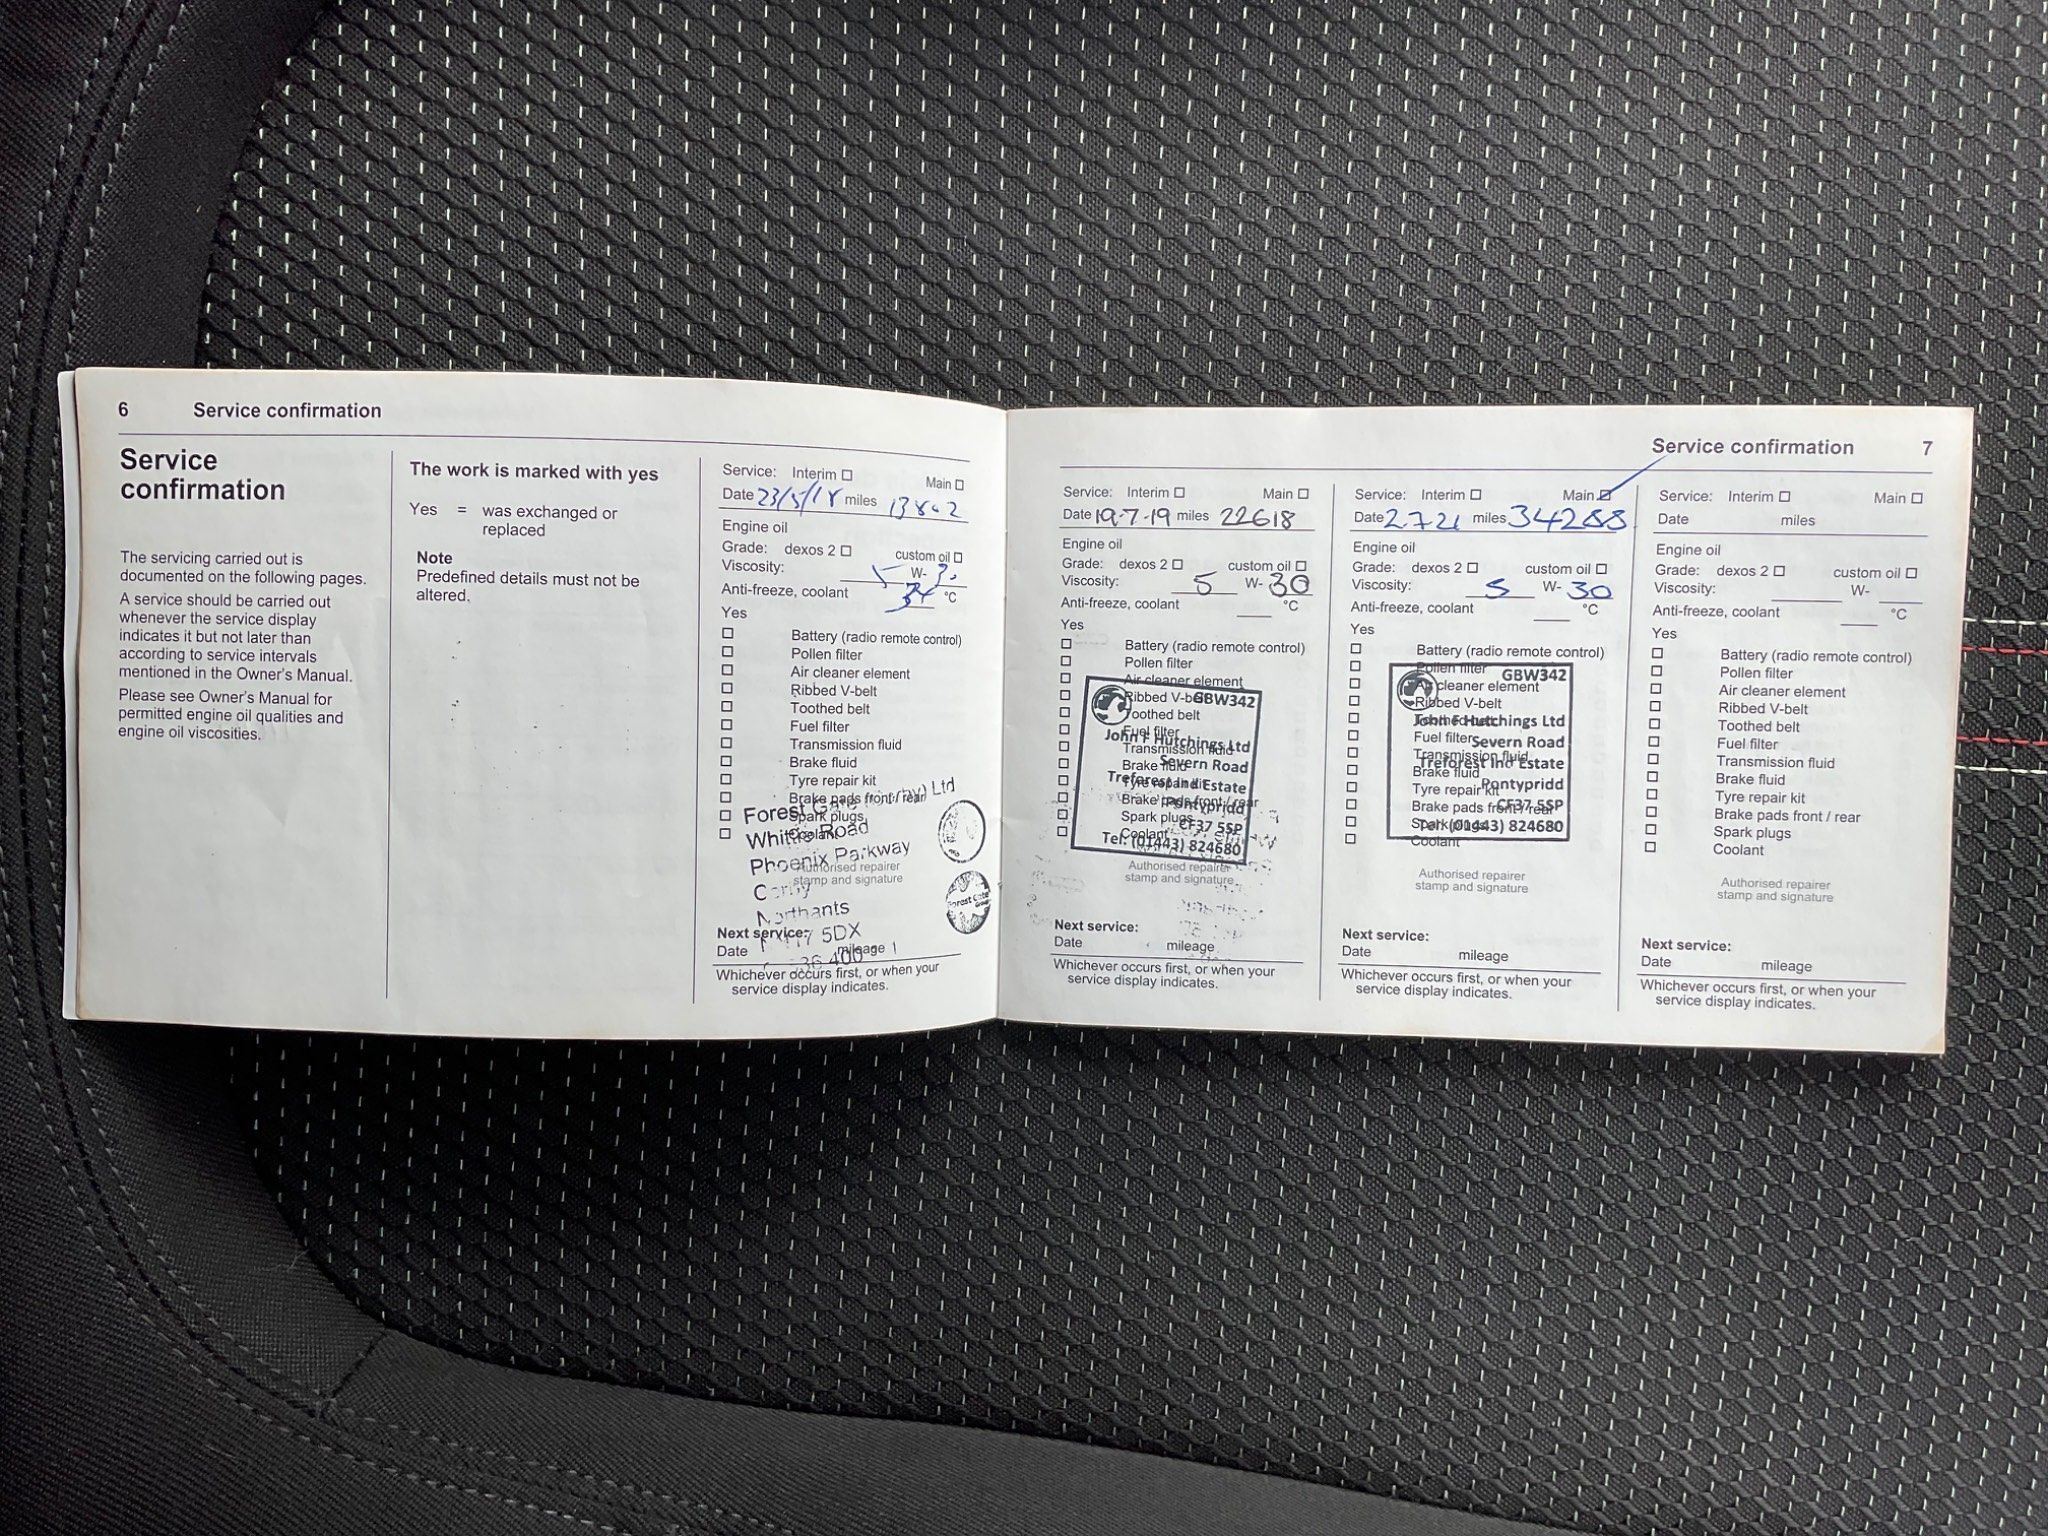 6 Service confirmation
Service
confirmation
The servicing carried out is
documented on the following pages.
A service should be carried out
whenever the service display
indicates it but not later than
according to service intervals
mentioned in the Owner's Manual.
Please see Owner's Manual for
permitted engine oil qualities and
engine oil viscosities.
The work is marked with yes
Yes = was exchanged or
replaced
Note
Predefined details must not be
altered.
Service: Interim Main
Date 23/5/18 miles
Engine oil
Grade: dexos 2 custom oil
Viscosity: 5 W- 30
Anti-freeze, coolant 34 °C
Yes
Battery (radio remote control)
Pollen filter
Air cleaner element
Ribbed V-belt
Toothed belt
Fuel filter
Transmission fluid
Brake fluid
Tyre repair kit
Brake pads front / rear
Spark plugs
Coolant
Forest Gate Ltd
Road
Phoenix Parkway
Corby
Northants
5DX
Forest Gate
Authorised repairer
stamp and signature
Next service:
Date mileage
Whichever occurs first, or when your
service display indicates.
Service confirmation 7
Service: Interim Main
Date 19.7.19 miles 22618
Engine oil
Grade: dexos 2 custom oil
Viscosity: 5 W- 30
Anti-freeze, coolant °C
Yes
Battery (radio remote control)
Pollen filter
Air cleaner element
Ribbed V-belt
Toothed belt
Fuel filter
Transmission fluid
Brake fluid
Tyre repair kit
Brake pads front / rear
Spark plugs
Coolant
GBW342
John F Hutchings Ltd
Severn Road
Treforest Ind Estate
Pontypridd
CF37 5SP
Tel: (01443) 824680
Authorised repairer
stamp and signature
Next service:
Date mileage
Whichever occurs first, or when your
service display indicates.
Service: Interim Main
Date 2.7.21 miles 34288
Engine oil
Grade: dexos 2 custom oil
Viscosity: 5 W- 30
Anti-freeze, coolant °C
Yes
Battery (radio remote control)
Pollen filter
Air cleaner element
Ribbed V-belt
Toothed belt
Fuel filter
Transmission fluid
Brake fluid
Tyre repair kit
Brake pads front / rear
Spark plugs
Coolant
GBW342
John F Hutchings Ltd
Severn Road
Treforest Ind Estate
Pontypridd
CF37 5SP
Tel: (01443) 824680
Authorised repairer
stamp and signature
Next service:
Date mileage
Whichever occurs first, or when your
service display indicates.
Service: Interim Main
Date miles
Engine oil
Grade: dexos 2 custom oil
Viscosity: W-
Anti-freeze, coolant °C
Yes
Battery (radio remote control)
Pollen filter
Air cleaner element
Ribbed V-belt
Toothed belt
Fuel filter
Transmission fluid
Brake fluid
Tyre repair kit
Brake pads front / rear
Spark plugs
Coolant
Authorised repairer
stamp and signature
Next service:
Date mileage
Whichever occurs first, or when your
service display indicates.